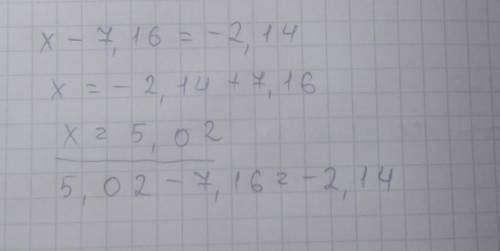 x - 7,16 = -2,14
x = - 2,14 + 7,16
x = 5,02
5,02 - 7,16 = -2,14